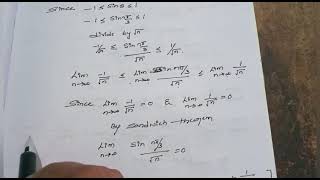 Since -1 ≤ sin θ ≤ 1
-1 ≤ sin nπ/3 ≤ 1
divide by √n
-1/√n ≤ sin nπ/3 / √n ≤ 1/√n
Lim n→∞ -1/√n ≤ Lim n→∞ sin nπ/3 / √n ≤ Lim n→∞ 1/√n
Since Lim n→∞ -1/√n = 0 & Lim n→∞ 1/√n = 0
By sandwich theorem
Lim n→∞ sin nπ/3 / √n = 0